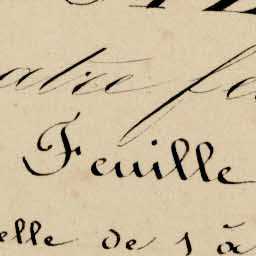 atre fe
Feuille
elle de 1 à